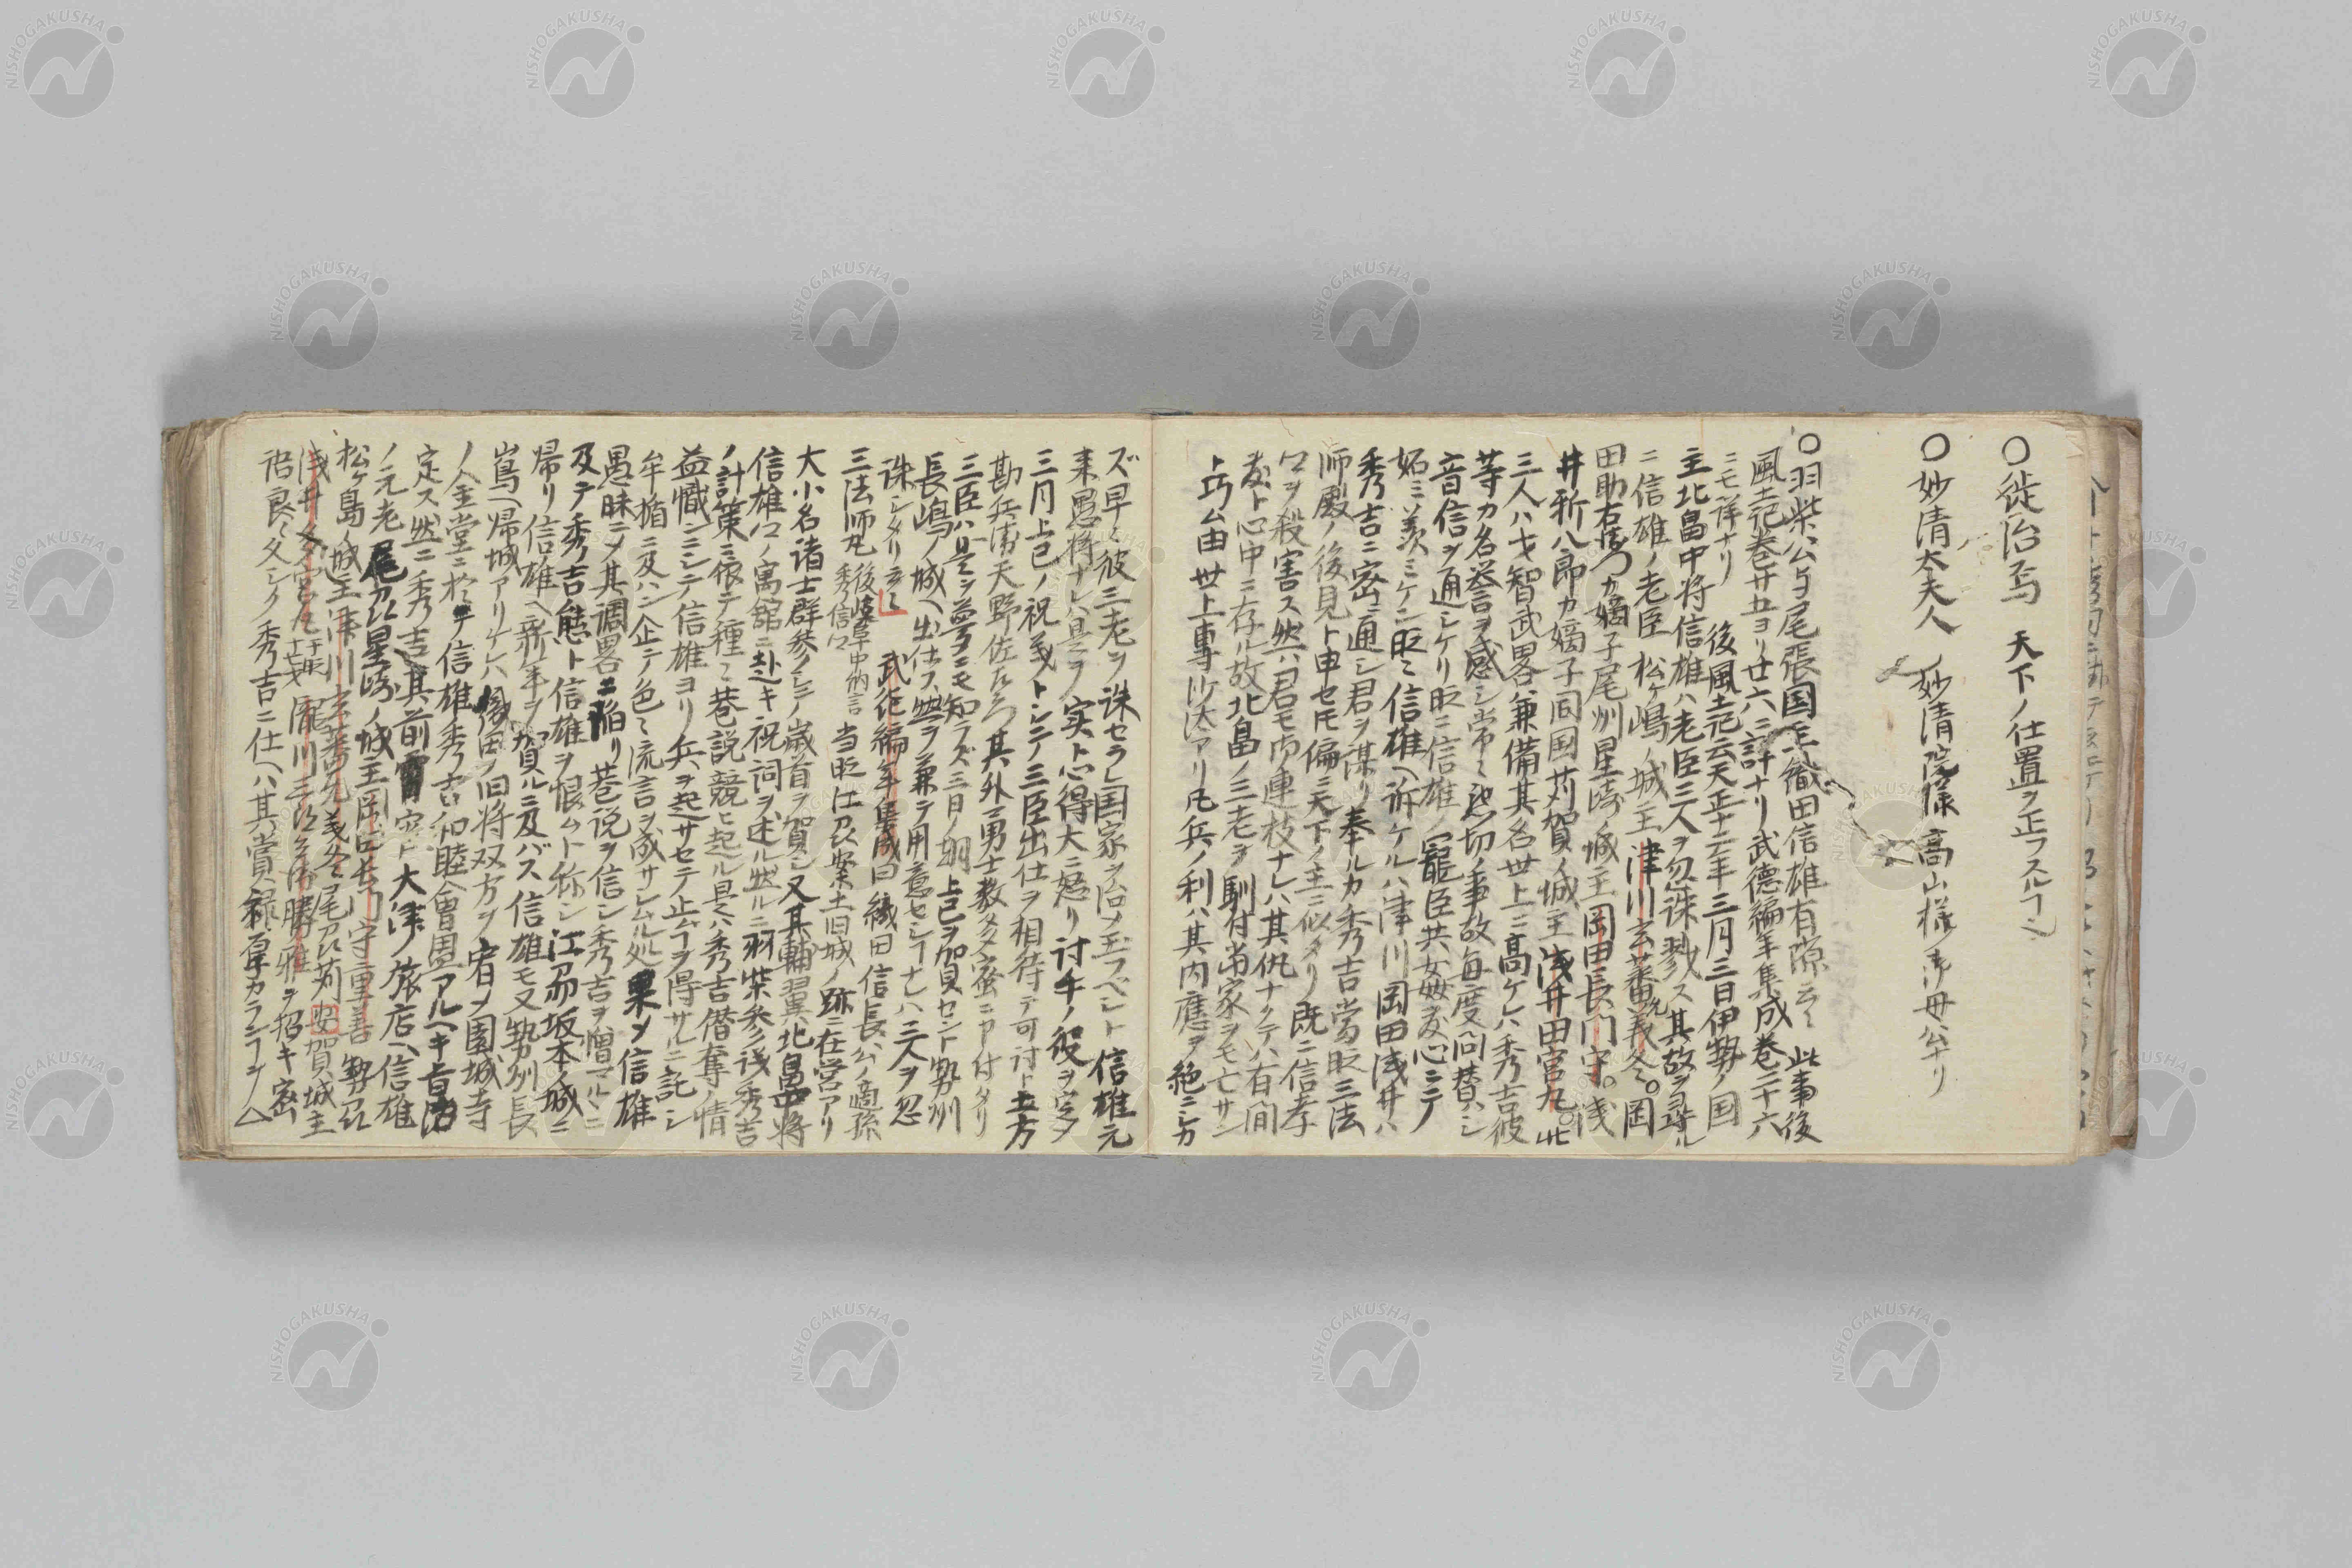 ○徙治焉 天下ノ仕置ヲ正フスルヿ也
○妙清太夫人 妙清院様高山様ノ御母公ナリ
○羽柴公与尾張国主織田信雄有隙云々 此事後
風土記巻廿五ヨリ廿六ニ詳ナリ武德編年集成巻二十六
ニモ詳ナリ 後風土記云天正十二年三月三日伊勢ノ国
主北畠中将信雄ハ老臣三人ヲ忽誅戮ス其故ヲ尋ル
ニ信雄ノ老臣松ヶ嶋ノ城主津川玄蕃允義冬。岡
田助右衛門カ嫡子尾州星崎ノ城主岡田長門守。浅
井新八郎カ嫡子同国苅賀ノ城主浅井田宮丸。此
三人ハ才智武畧兼備其名世上ニ高ケレハ秀吉彼
等カ名誉ヲ感シ常ニ懇切ノ事故毎度問替ハシ
音信ヲ通シケリ旺ニ信雄ノ寵臣共姦友心ニテ
妬ミ羨ミケン旺々信雄ヘ訴ケルハ津川岡田浅井ハ
秀吉ニ密ニ通シ君ヲ謀リ奉ルカ秀吉當旺三法
師殿ノ後見ト申セ𪜈偏ニ天下ノ主ニ似タリ既ニ信孝
ヲ殺害ス然ハ君モ御連枝ナレハ其仇ナクテハ有間
敷ト心中ニ存ル故北畠ノ三老ヲ馴付當家ヲモ亡サン
ト巧ム由世上專沙汰アリ凡兵ノ利ハ其内應ヲ絶ニシカ
ズ早々彼三老ヲ誅セラレ国家ヲ治メ玉フベシト信雄元
来愚将ナレハ是ヲ実ト心得大ニ怒リ討手ノ役ヲ定メ
三月上巳ノ祝義トシテ三臣出仕ヲ相待テ可討ト土方
勘兵衛天野佐左衛門其外勇士数多蜜ニ申付タリ
三臣ハ是ヲ夢ニモ知ラズ三日ノ朝上巳ヲ賀セント勢州
長嶋ノ城ヘ出仕ス兼テ用意セシヿナレハ三人ヲ忽
誅シタリ云々 武徳編年集成曰織田信長公ノ嫡孫
三法師丸後岐阜中納言秀信 当旺江刕安土旧城ノ跡ニ在営アリ
大小名諸士群參シテ歳首ヲ賀シ又其輔翼北畠中将
信雄ノ寓舘ニ赴キ祝詞ヲ述ル然ルニ羽柴參議秀吉
ノ計策ニ依テ種々巷説競ヒ起ル是ハ秀吉僣奪ノ情
益熾ンニシテ信雄ヨリ兵ヲ起サセテ止ヿヲ得サルニ託シ
牟楯ニ及ハン企テ色々流言ヲ成サシムル処果メ信雄
愚昧ニメ其調畧ニ陥リ巷説ヲ信シ秀吉ヲ憎マルヽニ
及テ秀吉態ト信雄ヲ恨ムト称シ江刕坂本ノ城ニ
帰リ信雄ヘ新年ヲ賀ルニ及バス信雄モ又勢州長
嶌ヘ帰城アリケレハ織田ノ旧将双方ヲ宥メ園城寺
ノ金堂ニ於テ信雄秀吉和睦會盟アルヘキ旨治
定ス然ニ秀吉其前宵窃ニ大津ノ旅店ヘ信雄
ノ元老尾刕星崎ノ城主岡田長門守重善勢刕
松ヶ島ノ城主津川玄蕃允義冬尾刕苅安賀城主
浅井多宮丸 瀧川三郎兵衛勝雅ヲ招キ密
語良々久シク秀吉ニ仕ヘハ其賞禄厚カランヿヲ